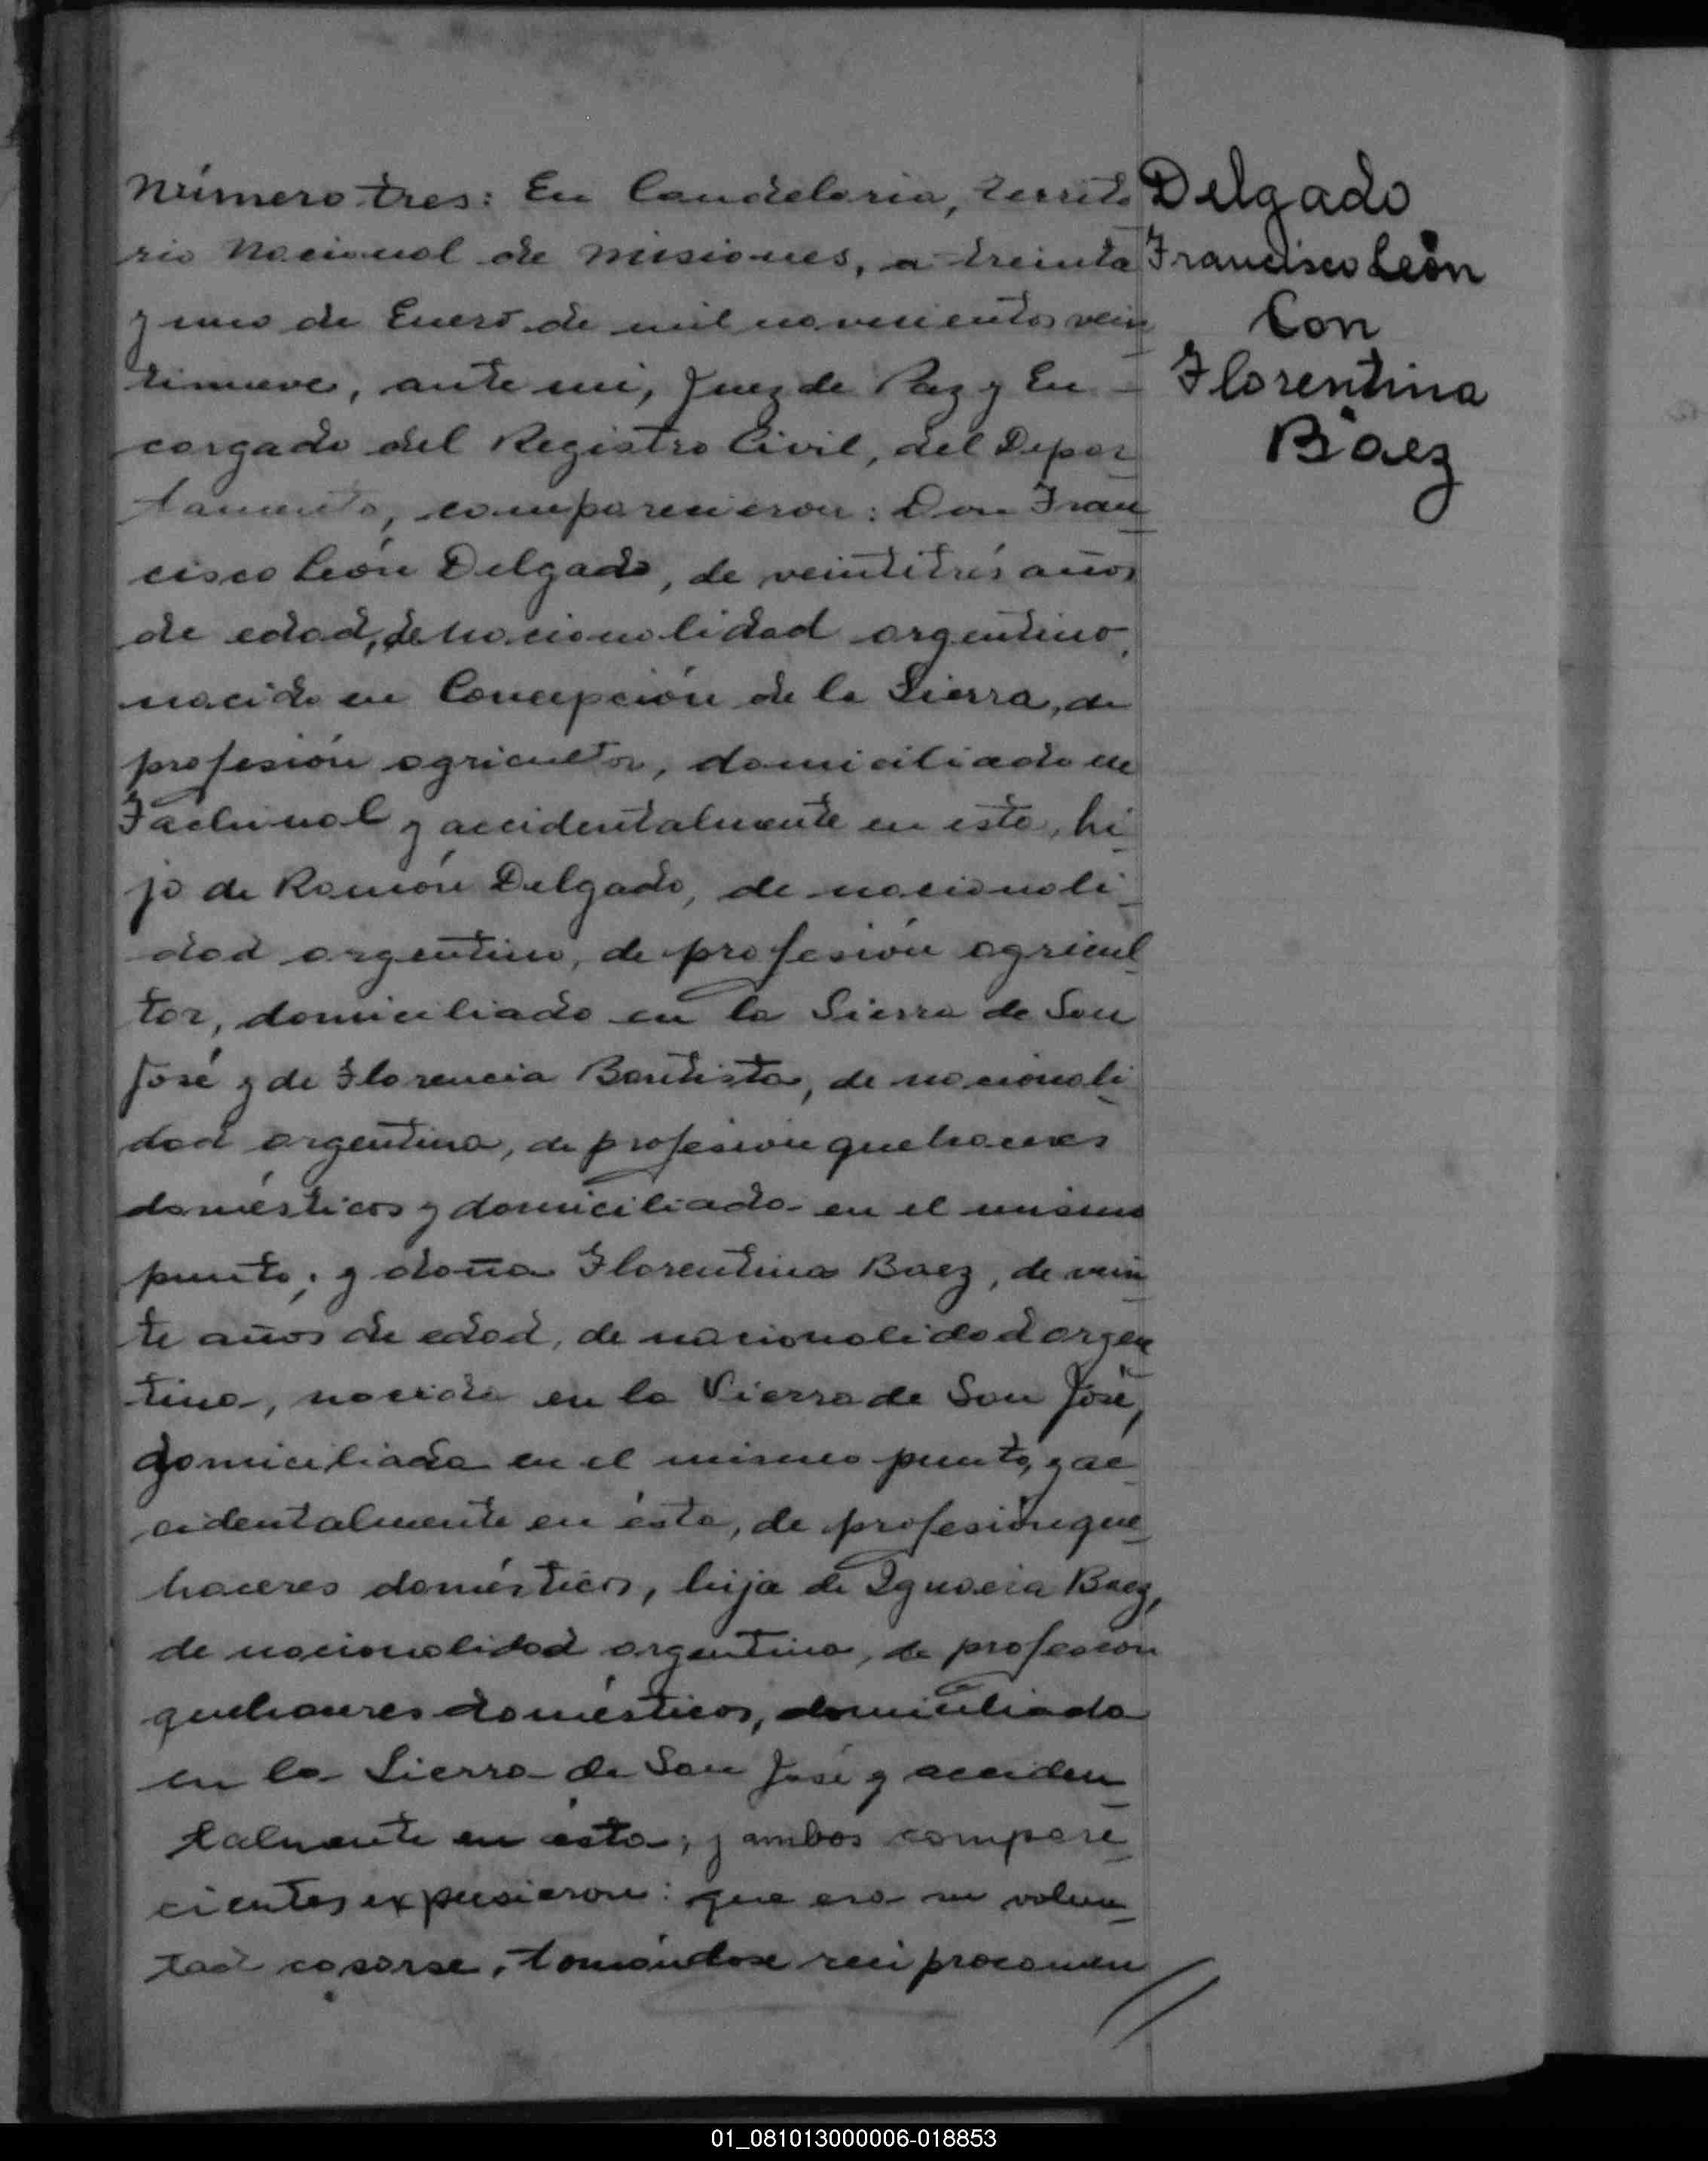 Número tres: En Candelaria, territo
rio Nacional de Misiones, a treinta
y uno de Enero de mil novecientos vein
tinueve, ante mi, Juez de Paz y En-
cargado del Registro Civil, del Depar
tamento, comparecieron: Don Fran
cisco León Delgado, de veintitrés años
de edad, de nacionalidad argentino,
nacido en Concepción de la Sierra, de
profesión agricultor, domiciliado en
Fachinal y accidentalmente en esta, hi
jo de Ramón Delgado, de nacionali
dad argentino, de profesión agricul
tor, domiciliado en la Sierra de San
José y de Florencia Bautista, de nacionali
dad argentina, de profesión quehaceres
domésticos y domiciliada en el mismo
punto; y doña Florentina Baez, de vein
te años de edad, de nacionalidad argen
tina, nacida en la Sierra de San José,
domiciliada en el mismo punto, y ac
cidentalmente en ésta, de profesión que
haceres domésticos, hija de Ignacia Baez,
de nacionalidad argentina, de profesión
quehaceres domésticos, domiciliada
en la Sierra de San José y acciden
talmente en ésta; y ambos compare
cientes expusieron: que era su volun
tad casarse, tomándose reciprocamen
Delgado
Francisco León
Con
Florentina
Baez
01_081013000006-018853